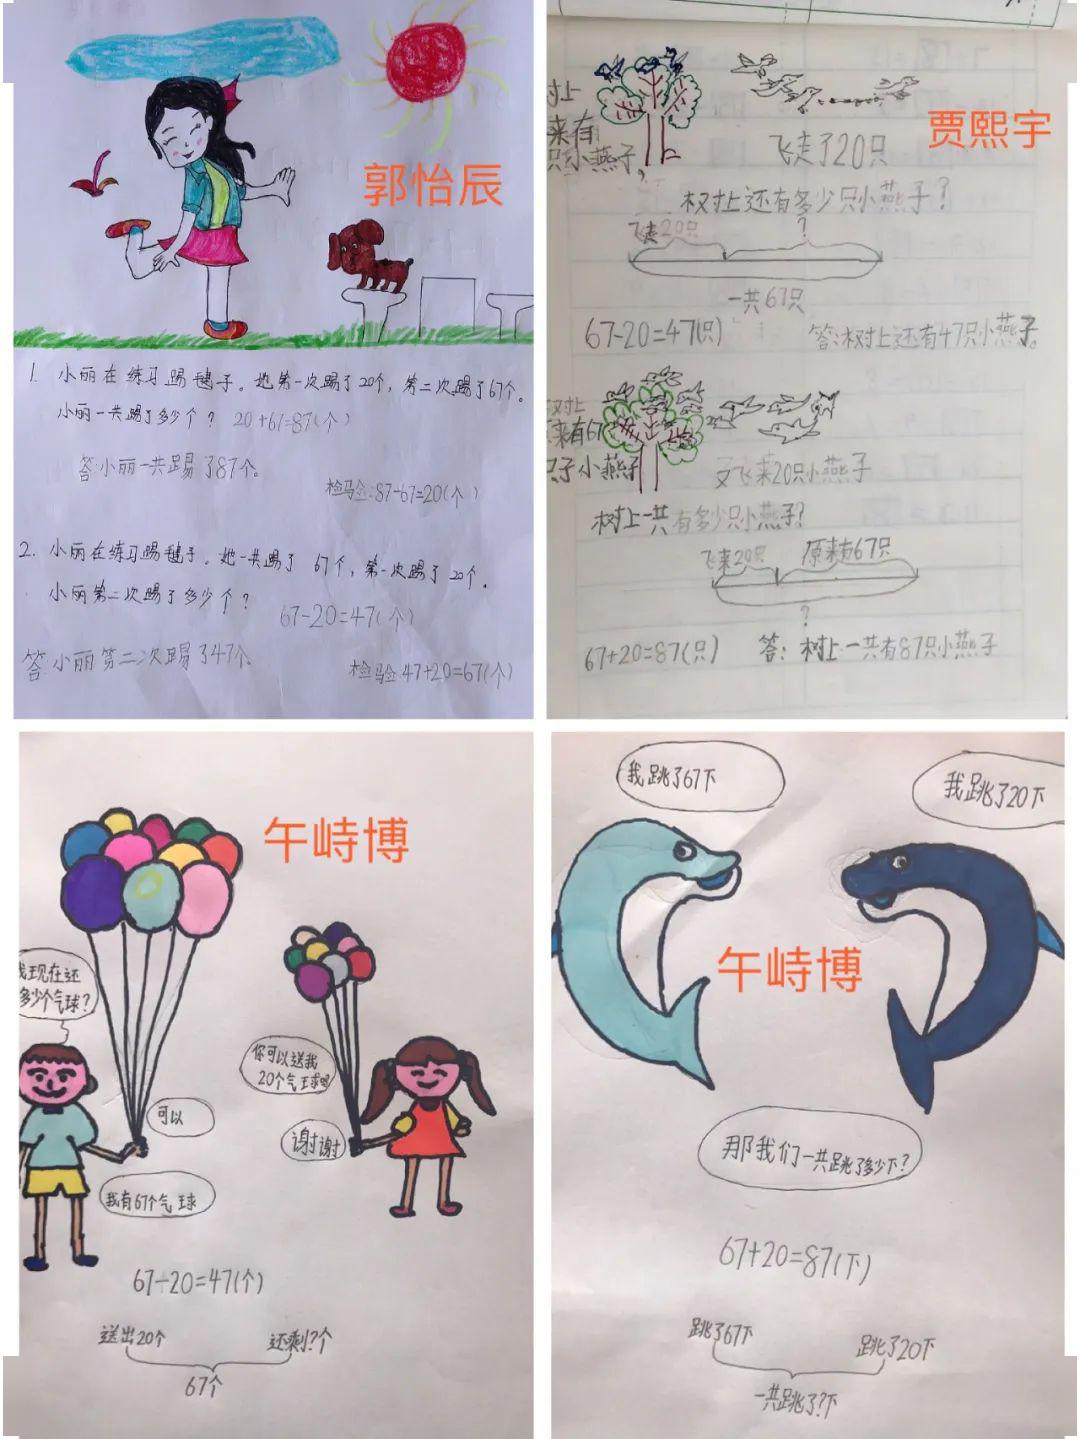 郭怡辰
1. 小丽在练习踢毽子。她第一次踢了20个，第二次踢了67个。
小丽一共踢了多少个？ 20+67=87(个)
答:小丽一共踢了87个。
检验:87-67=20(个)
2. 小丽在练习踢毽子。她一共踢了 67个，第一次踢了 20个。
小丽第二次踢了多少个？
67-20=47(个)
答:小丽第二次踢了47个。
检验:47+20=67(个)
贾熙宇
树上
来有
只小燕子，
飞走了20只
树上还有多少只小燕子？
飞走20只 ？
一共67只
67-20=47(只) 答:树上还有47只小燕子。
树上
来有67
只子小燕子
又飞来20只小燕子
树上一共有多少只小燕子？
飞来20只 原来有67只
？
67+20=87(只) 答：树上一共有87只小燕子
午峙博
我现在还
多少个气球？
你可以送我
20个气球吗
可以
谢谢
我有67个气球
67-20=47(个)
送出20个 还剩?个
67个
我跳了67下
我跳了20下
午峙博
那我们一共跳了多少下？
67+20=87(下)
跳了67下 跳了20下
一共跳了?下